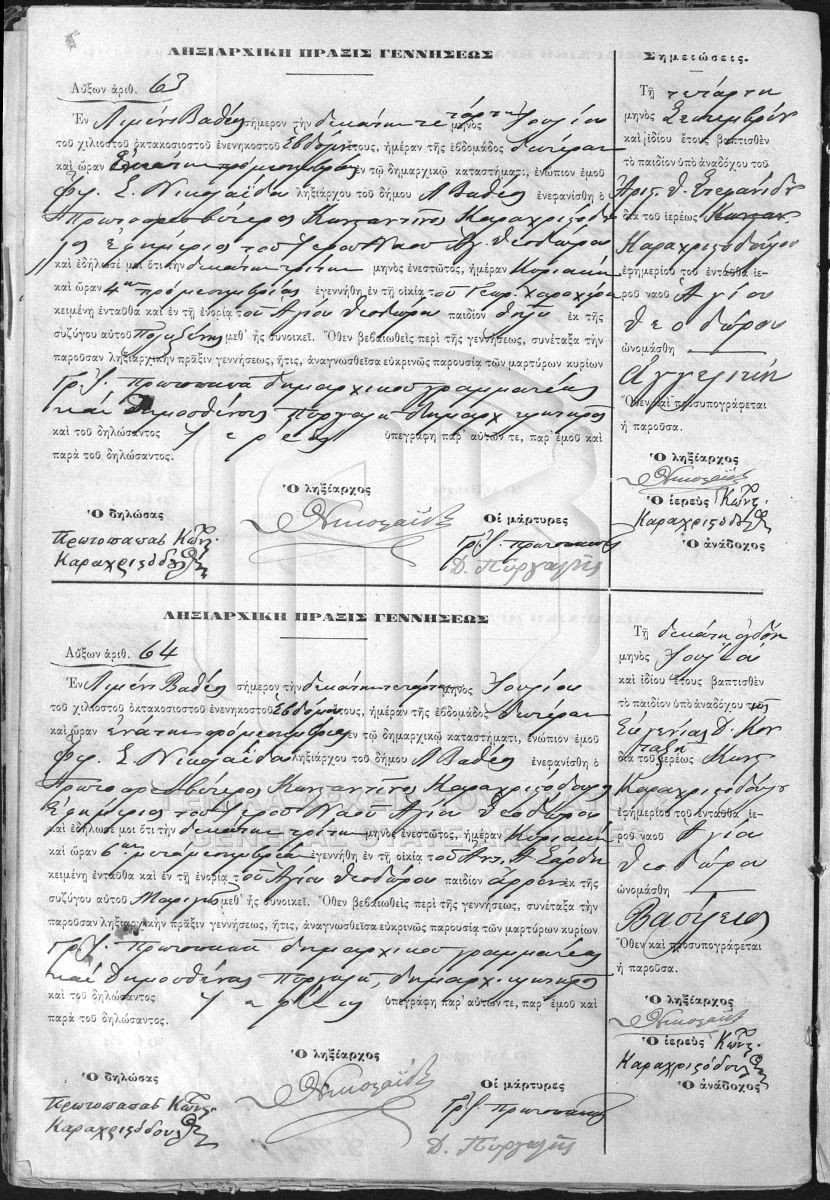 ΛΗΞΙΑΡΧΙΚΗ ΠΡΑΞΙΣ ΓΕΝΝΗΣΕΩΣ
Αὔξων ἀριθ. 63
Ἐν Λιμένι Βαθέος σήμερον τὴν δεκάτην τετάρτην μηνὸς Ἰουλίου
τοῦ χιλιοστοῦ ὀκτακοσιοστοῦ ἐνενηκοστοῦ Ἑβδόμου ἔτους, ἡμέραν τῆς ἑβδομάδος δευτέραν
καὶ ὥραν ἐνάτην πρὸ μεσημβρίας ἐν τῷ δημαρχικῷ καταστήματι, ἐνώπιον ἐμοῦ
Σ. Νικολαΐδου ληξιάρχου τοῦ δήμου Λ. Βαθέος ἐνεφανίσθη ὁ
Πρωτοπρεσβύτερος Κωνσταντῖνος Καραχριστοδούλου
Ἐφημέριος τοῦ Ἱεροῦ Ναοῦ Ἁγ. Θεοδώρου
καὶ ἐδήλωσέ μοι ὅτι τὴν δεκάτην τρίτην μηνὸς ἐνεστῶτος, ἡμέραν Κυριακὴν
καὶ ὥραν 4ην πρὸ μεσημβρίας ἐγεννήθη ἐν τῇ οἰκίᾳ τοῦ Γεωρ.
κειμένῃ ἐνταῦθα καὶ ἐν τῇ ἐνορίᾳ τοῦ Ἁγίου Θεοδώρου παιδίον θῆλυ ἐκ τῆς
συζύγου αὐτοῦ Πολυξένης μεθ' ἧς συνοικεῖ. Ὅθεν βεβαιωθεὶς περὶ τῆς γεννήσεως, συνέταξα τὴν
παροῦσαν ληξιαρχικὴν πρᾶξιν γεννήσεως, ἥτις, ἀναγνωσθεῖσα εὐκρινῶς παρουσίᾳ τῶν μαρτύρων κυρίων
Γρ. Πρωτοπαπᾶ δημαρχικοῦ γραμματέως
καὶ Δημοσθένους Πυργαλῆ δημαρχ. κλητῆρος
καὶ τοῦ δηλώσαντος Ἱερέως ὑπεγράφη παρ' αὐτῶν τε, παρ' ἐμοῦ καὶ
παρὰ τοῦ δηλώσαντος.
Ὁ ληξίαρχος
Ὁ δηλώσας
Οἱ μάρτυρες
Νικολαΐδης
Πρωτοπαπᾶς Κων.
Καραχριστόδουλος
Γρ. Πρωτοπαπᾶς
Δ. Πυργαλῆς
Σημειώσεις.
Τῇ τετάρτῃ
μηνὸς Σεπτεμβρίου
καὶ ἰδίου ἔτους βαπτισθὲν
τὸ παιδίον ὑπὸ ἀναδόχου τοῦ
Ἀριστ. Θ. Στεφανίδου
διὰ τοῦ ἱερέως Κωνσταν.
Καραχριστοδούλου
ἐφημερίου τοῦ ἐνταῦθα ἱε-
ροῦ ναοῦ Ἁγίου
Θεοδώρου
ὠνομάσθη
Ἀγγελικὴ
Ὅθεν καὶ προσυπογράφεται
ἡ παροῦσα.
Ὁ ληξίαρχος
Νικολαΐδης
Ὁ ἱερεὺς Κων.
Καραχριστόδουλος
Ὁ ἀνάδοχος
ΛΗΞΙΑΡΧΙΚΗ ΠΡΑΞΙΣ ΓΕΝΝΗΣΕΩΣ
Αὔξων ἀριθ. 64
Ἐν Λιμένι Βαθέος σήμερον τὴν δεκάτην τετάρτην μηνὸς Ἰουλίου
τοῦ χιλιοστοῦ ὀκτακοσιοστοῦ ἐνενηκοστοῦ Ἑβδόμου ἔτους, ἡμέραν τῆς ἑβδομάδος δευτέραν
καὶ ὥραν ἐνάτην πρὸ μεσημβρίας ἐν τῷ δημαρχικῷ καταστήματι, ἐνώπιον ἐμοῦ
Σ. Νικολαΐδου ληξιάρχου τοῦ δήμου Λ. Βαθέος ἐνεφανίσθη ὁ
Πρωτοπρεσβύτερος Κωνσταντῖνος Καραχριστόδουλος
Ἐφημέριος τοῦ Ἱεροῦ Ναοῦ Ἁγίου Θεοδώρου
καὶ ἐδήλωσέ μοι ὅτι τὴν δεκάτην τρίτην μηνὸς ἐνεστῶτος, ἡμέραν Κυριακὴν
καὶ ὥραν 6ην μετὰ μεσημβρίαν ἐγεννήθη ἐν τῇ οἰκίᾳ τοῦ Ἀντ. Α.
κειμένῃ ἐνταῦθα καὶ ἐν τῇ ἐνορίᾳ τοῦ Ἁγίου Θεοδώρου παιδίον ἄρρεν ἐκ τῆς
συζύγου αὐτοῦ Μαριγῶς μεθ' ἧς συνοικεῖ. Ὅθεν βεβαιωθεὶς περὶ τῆς γεννήσεως, συνέταξα τὴν
παροῦσαν ληξιαρχικὴν πρᾶξιν γεννήσεως, ἥτις, ἀναγνωσθεῖσα εὐκρινῶς παρουσίᾳ τῶν μαρτύρων κυρίων
Γρ. Πρωτοπαπᾶ δημαρχικοῦ γραμματέως
καὶ Δημοσθένους Πυργαλῆ, δημαρχ. κλητῆρος
καὶ τοῦ δηλώσαντος Ἱερέως ὑπεγράφη παρ' αὐτῶν τε, παρ' ἐμοῦ καὶ
παρὰ τοῦ δηλώσαντος.
Ὁ ληξίαρχος
Ὁ δηλώσας
Οἱ μάρτυρες
Νικολαΐδης
Πρωτοπαπᾶς Κων.
Καραχριστόδουλος
Γρ. Πρωτοπαπᾶς
Δ. Πυργαλῆς
Τῇ δεκάτῃ ὀγδόῃ
μηνὸς Ἰουλίου
καὶ ἰδίου ἔτους βαπτισθὲν
τὸ παιδίον ὑπὸ ἀναδόχου τῆς
Εὐγενίας Δ.
διὰ τοῦ ἱερέως Κωνσ.
Καραχριστοδούλου
ἐφημερίου τοῦ ἐνταῦθα ἱε-
ροῦ ναοῦ Ἁγίου
Θεοδώρου
ὠνομάσθη
Βασίλειος
Ὅθεν καὶ προσυπογράφεται
ἡ παροῦσα.
Ὁ ληξίαρχος
Νικολαΐδης
Ὁ ἱερεὺς Κων.
Καραχριστόδουλος
Ὁ ἀνάδοχος